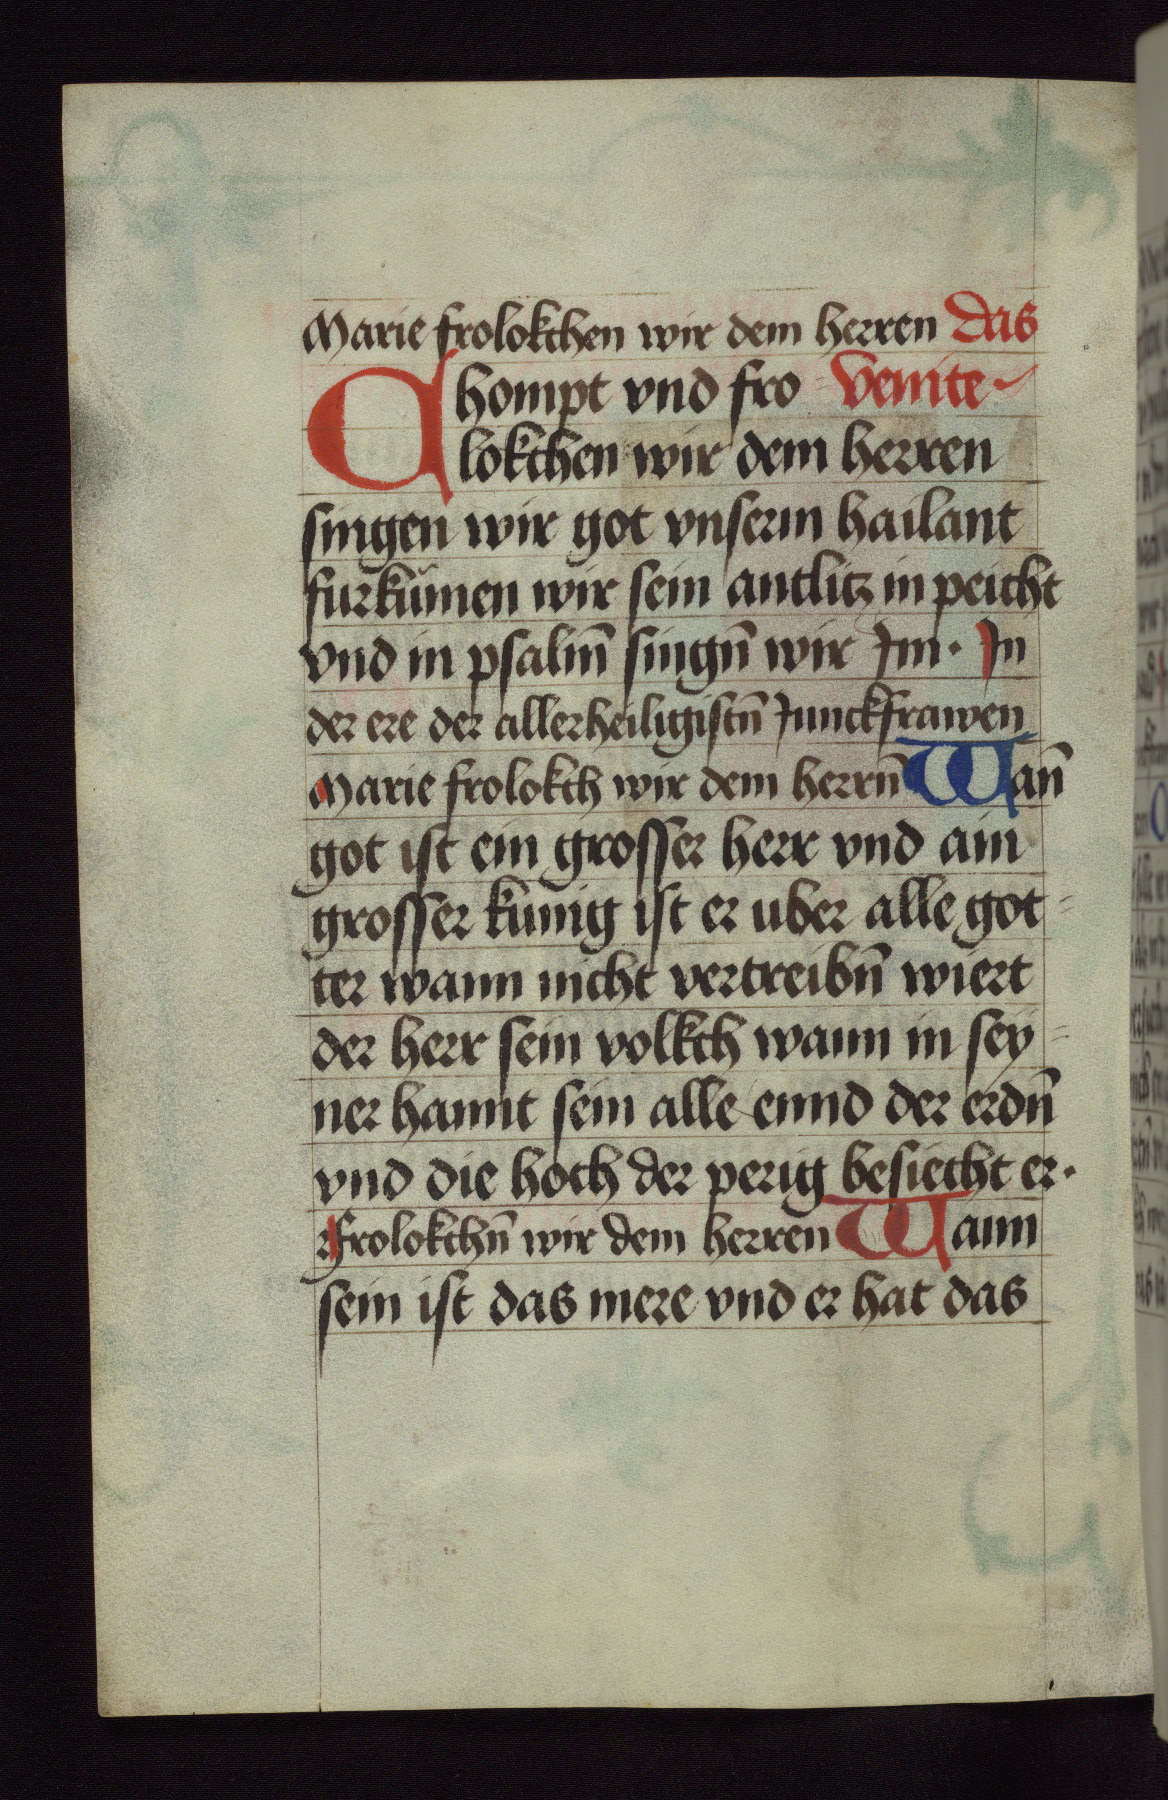 Marie frolokchen wir dem herren Das
Chompt vnd fro- Venite
lokchen wir dem herren
singen wir got vnserm hailant
furkůmen wir sein antlitz in peicht
vnd in psalm̄ singn̄ wir Im· In
der ere der allerheiligistn̄ Junckfrawen
Marie frolokch wir dem herrn̄ Wan̄
got ist ein grosser herr vnd ain
grosser kunig ist er uber alle got-
ter wann nicht vertreibn̄ wiert
der herr sein volkch wann in sey-
ner hannt sein alle ennd der erdn̄
vnd die hoch der perig besiecht er·
Frolokchn̄ wir dem herren Wann
sein ist das mere vnd er hat das